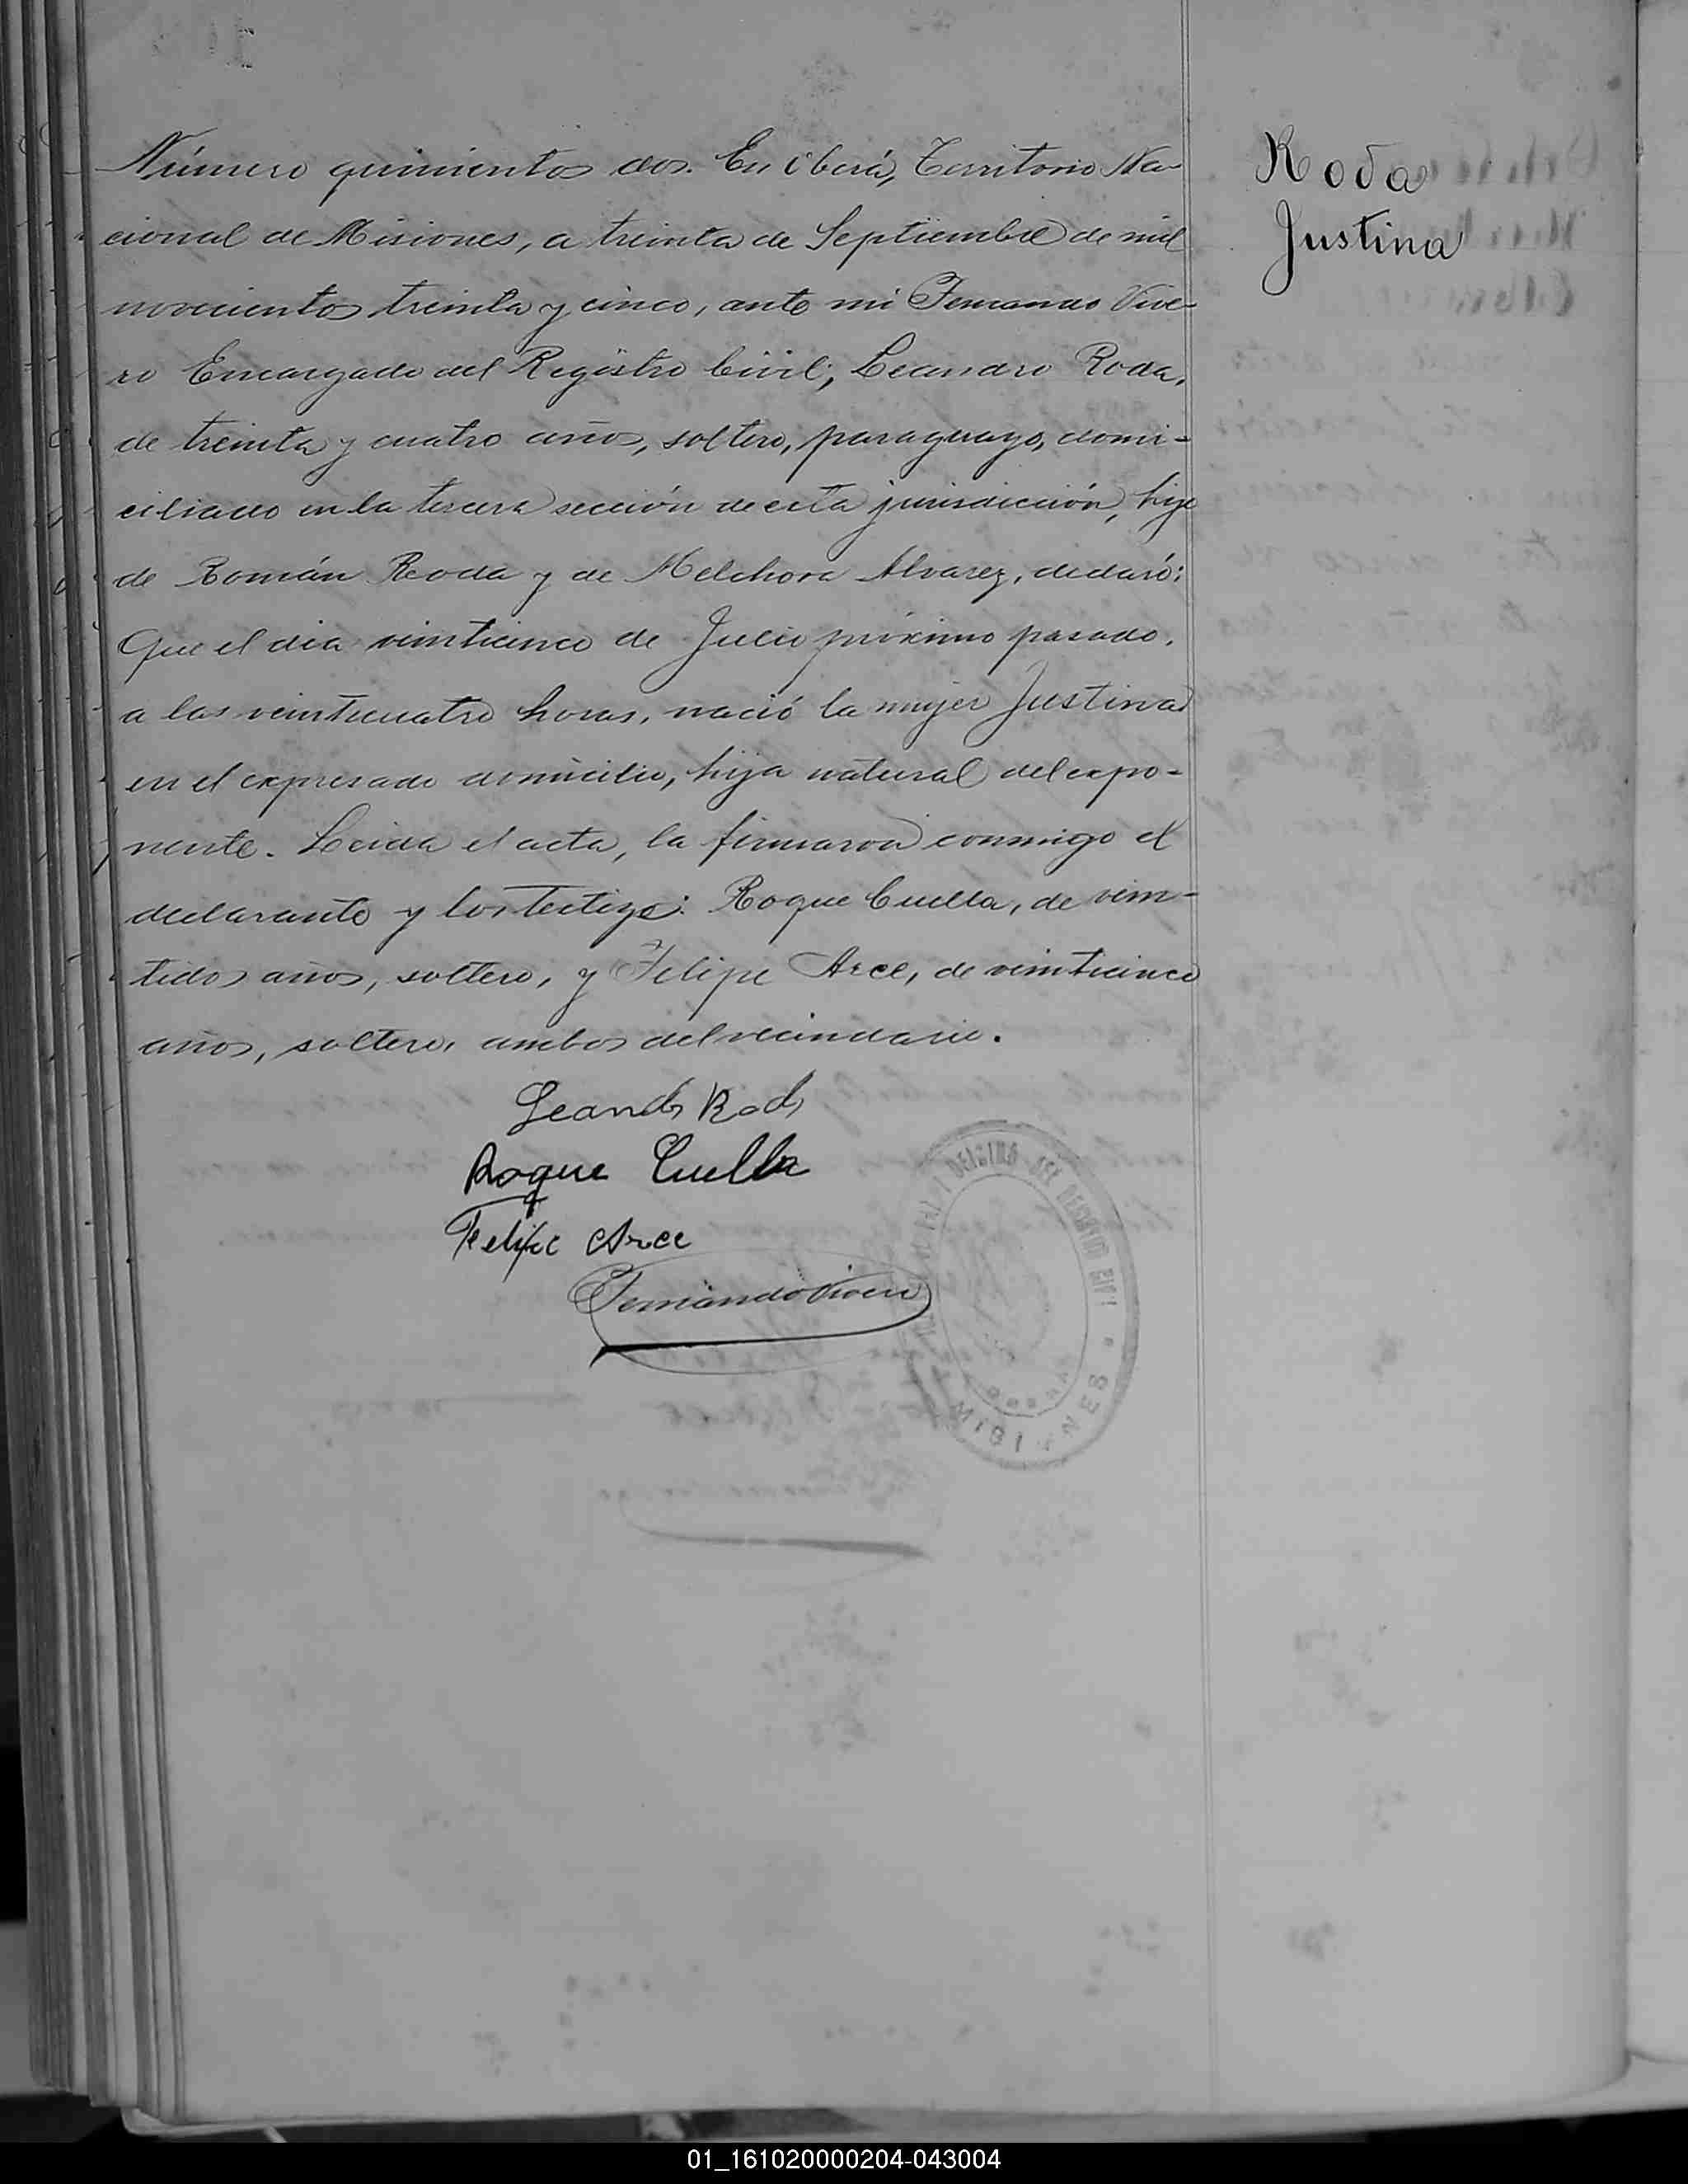 Número quinientos dos. En Oberá, Territorio Na-
cional de Misiones, a treinta de Septiembre de mil
novecientos treinta y cinco, ante mi Fernando Vive-
ro Encargado del Registro Civil; Leandro Roda,
de treinta y cuatro años, soltero, paraguayo, domi-
ciliado en la tercera sección de esta jurisdicción, hijo
de Román Roda y de Melchora Alvarez, declaró:
Que el dia veinticinco de Julio próximo pasado,
a las veinticuatro horas, nació la mujer Justina
en el expresado domicilio, hija natural del expo-
nente. Leida el acta, la firmaron conmigo el
declarante y los testigos: Roque Cuella, de vein-
tidos años, soltero, y Felipe Arce, de veinticinco
años, soltero, ambos del vecindario.
Leandro Roda
Roque Cuella
Felipe Arce
Fernando Vivero
Roda
Justina
DEL REGISTRO CIVIL
MISIONES
01_161020000204-043004